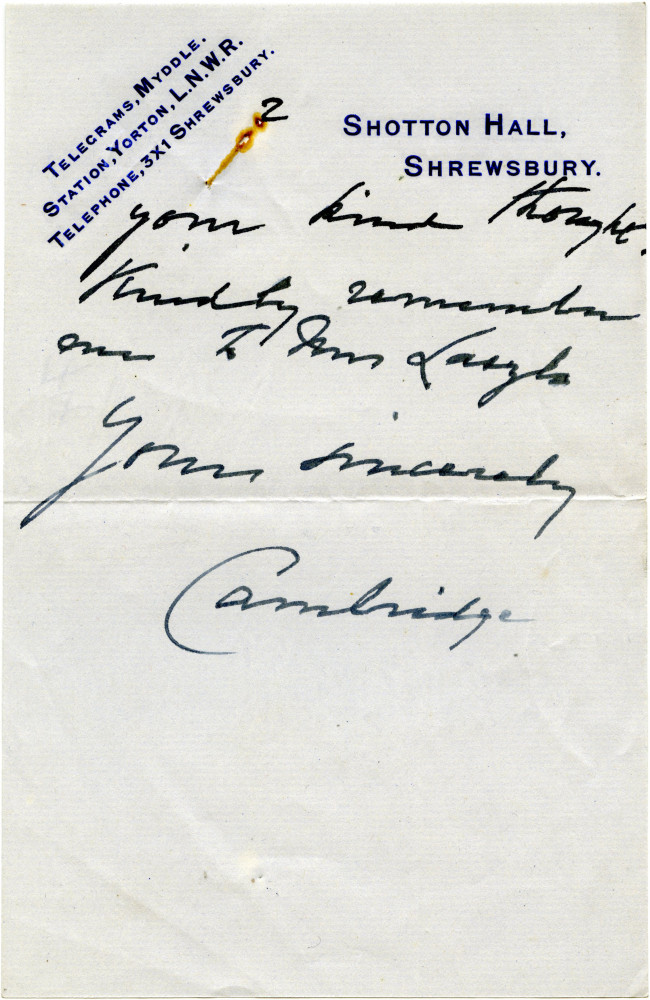 TELEGRAMS, MYDDLE.
STATION, YORTON, L.N.W.R.
TELEPHONE, 3X1 SHREWSBURY.
2
SHOTTON HALL,
SHREWSBURY.
your kind thought.
Kindly remember
me to Mrs Laszlo
Yours sincerely
Cambridge